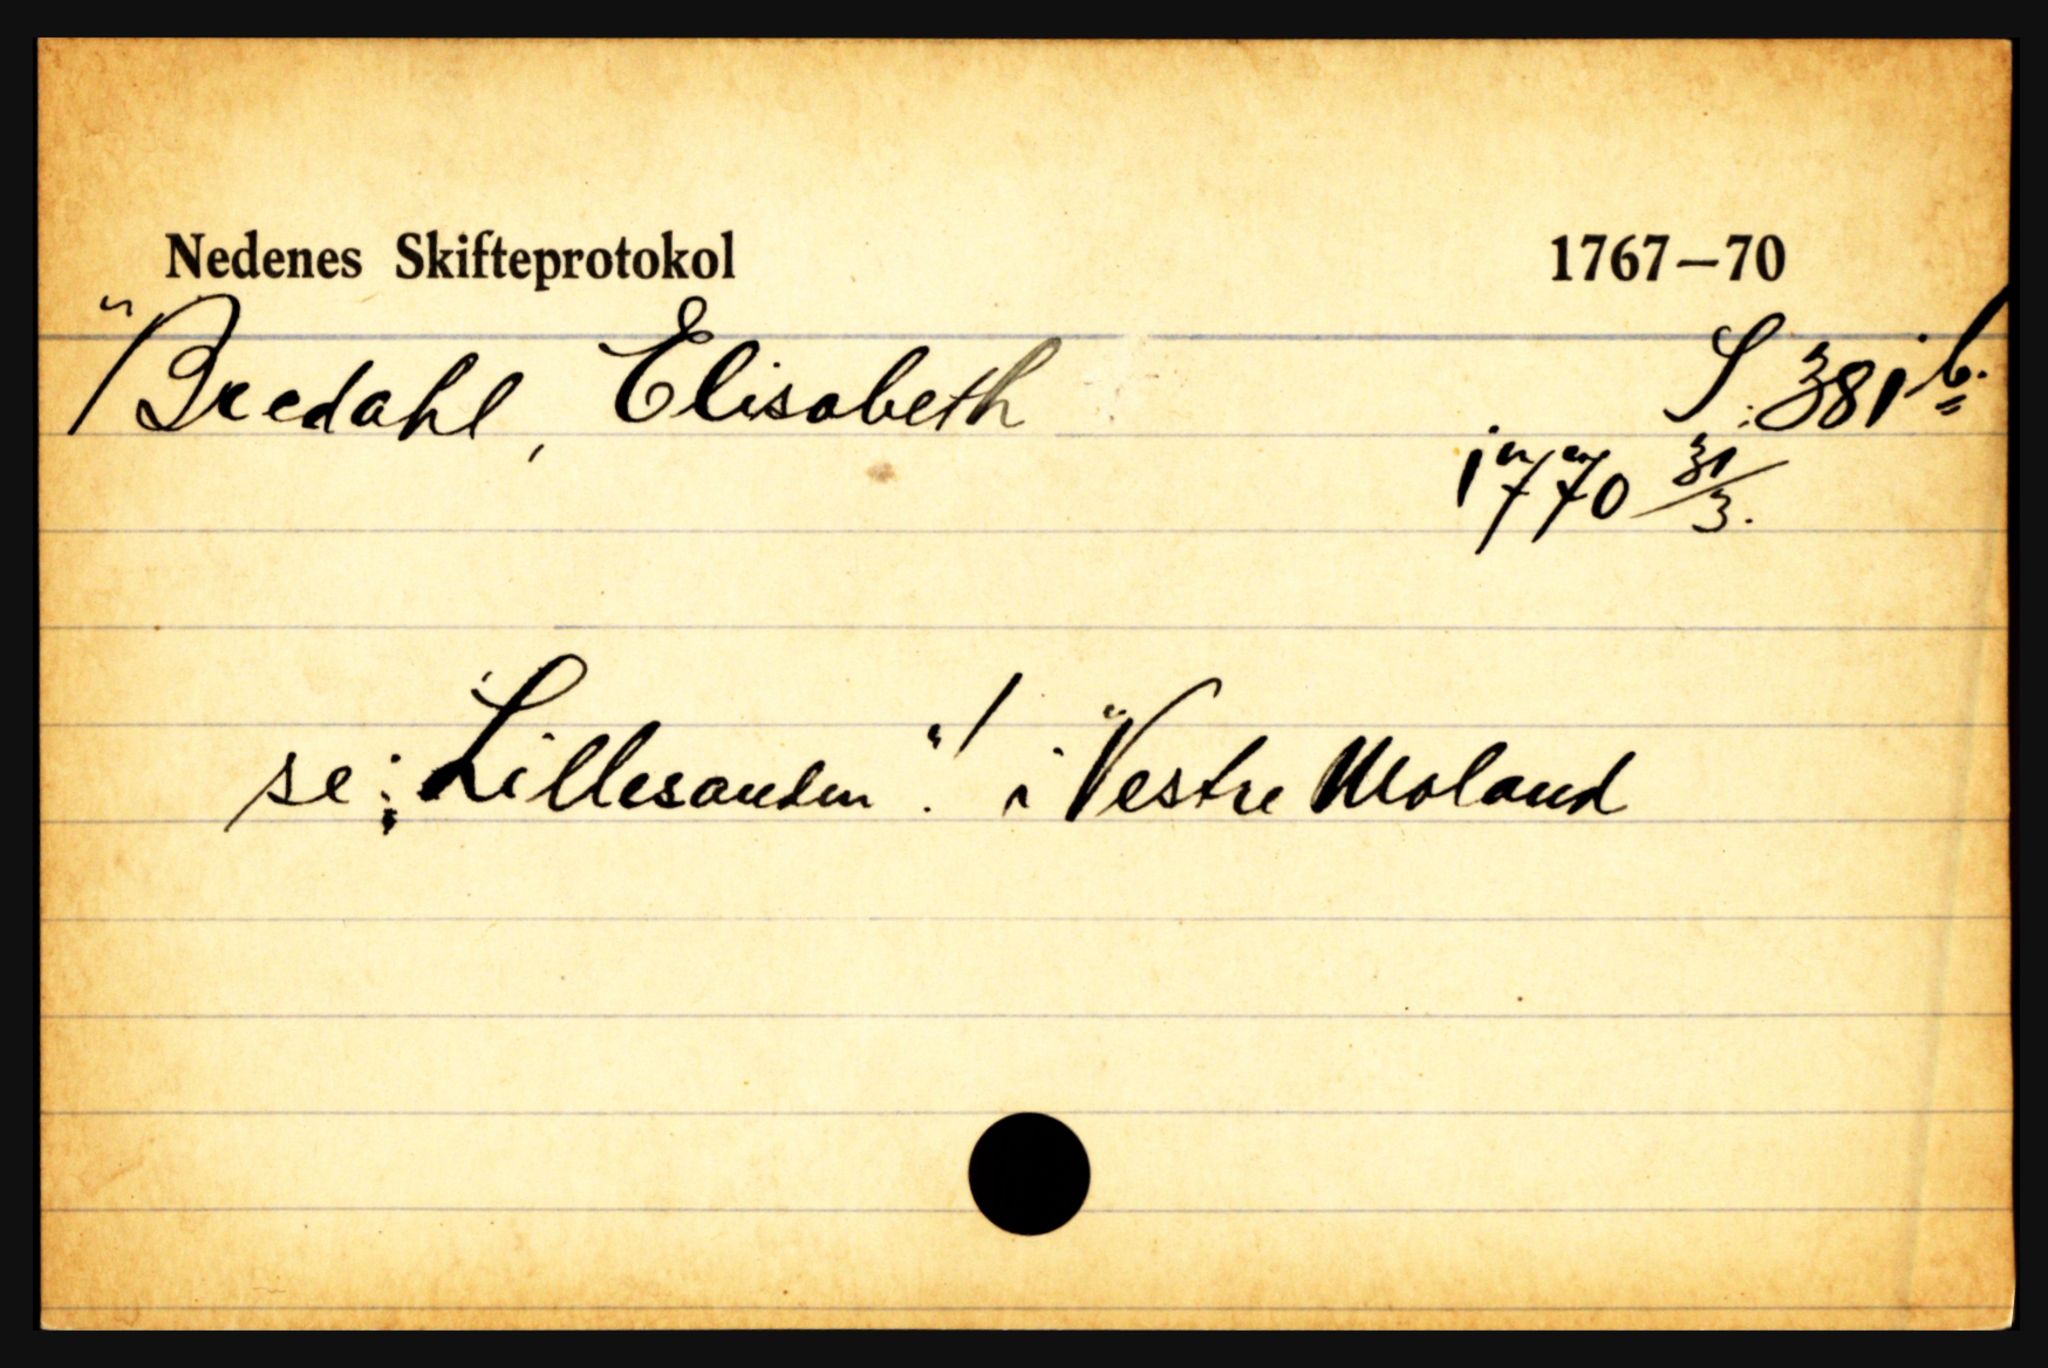 Nedenes Skifteprotokol 1767–70
Bredahl, Elisabeth S. 381 b.
1770 31/3.
se: Lillesanden"! i Vestre Moland